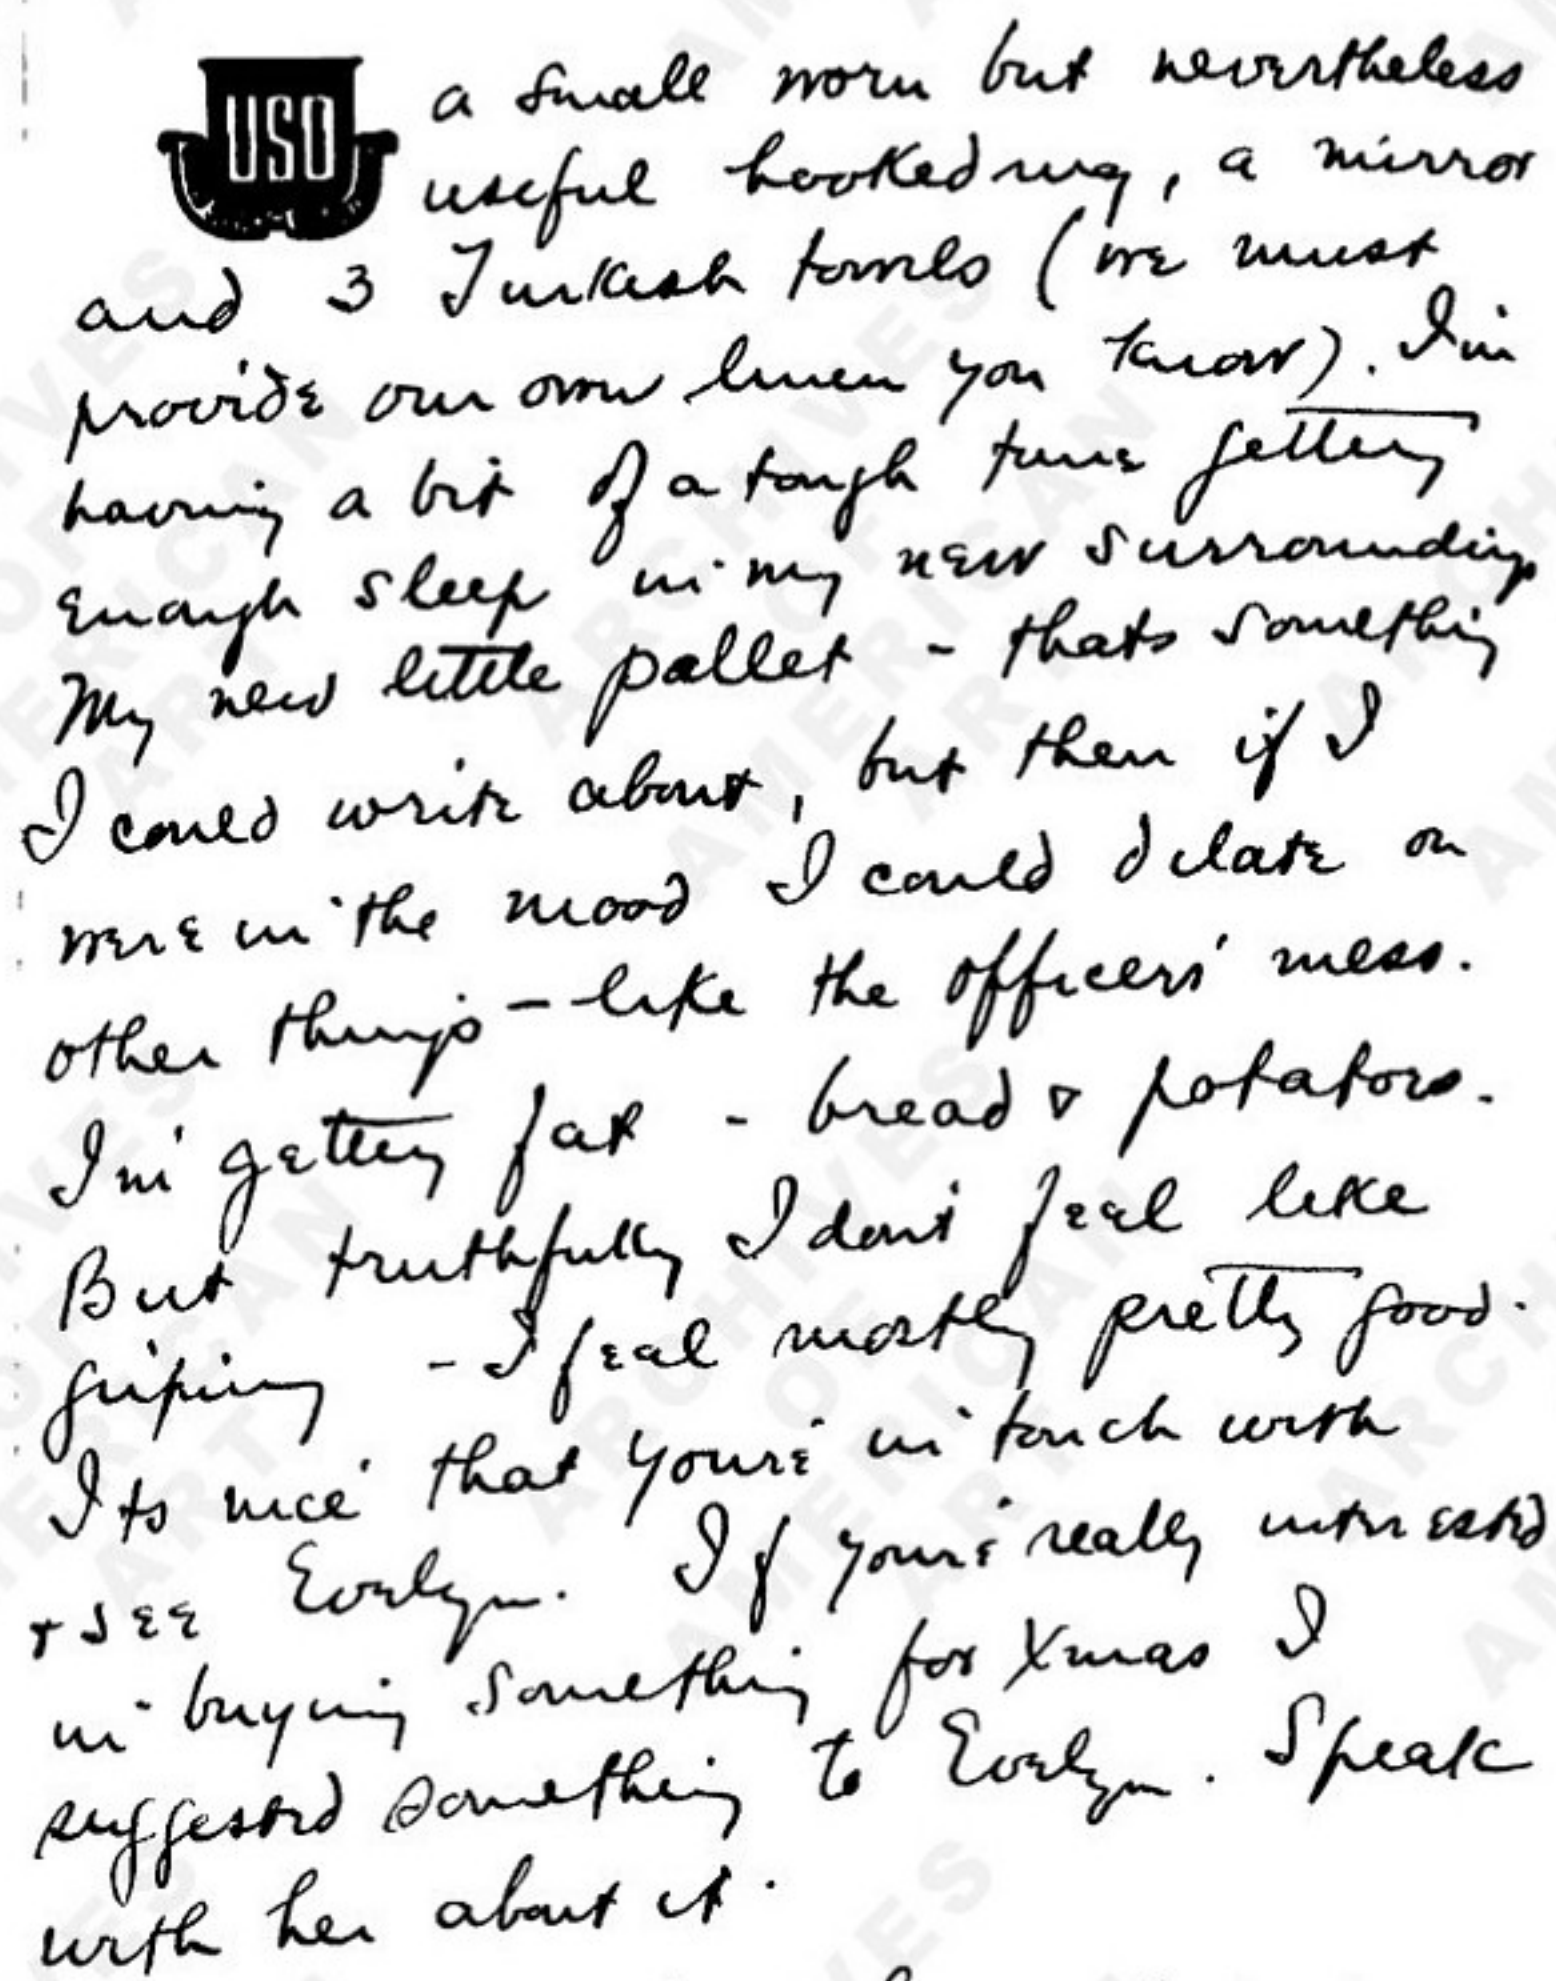 USO
a small worn but nevertheless
useful hooked rug, a mirror
and 3 Turkish towels (we must
provide our own linen you know). I'm
having a bit of a tough time getting
enough sleep in my new surroundings
My new little pallet - thats something
I could write about, but then if I
were in the mood I could dilate on
other things - like the officers' mess.
I'm getting fat - bread & potatoes.
But truthfully I don't feel like
griping - I feel mostly pretty good.
Its nice that you're in touch with
+ see Evelyn. If you're really interested
in buying something for Xmas I
suggested something to Evelyn. Speak
with her about it.